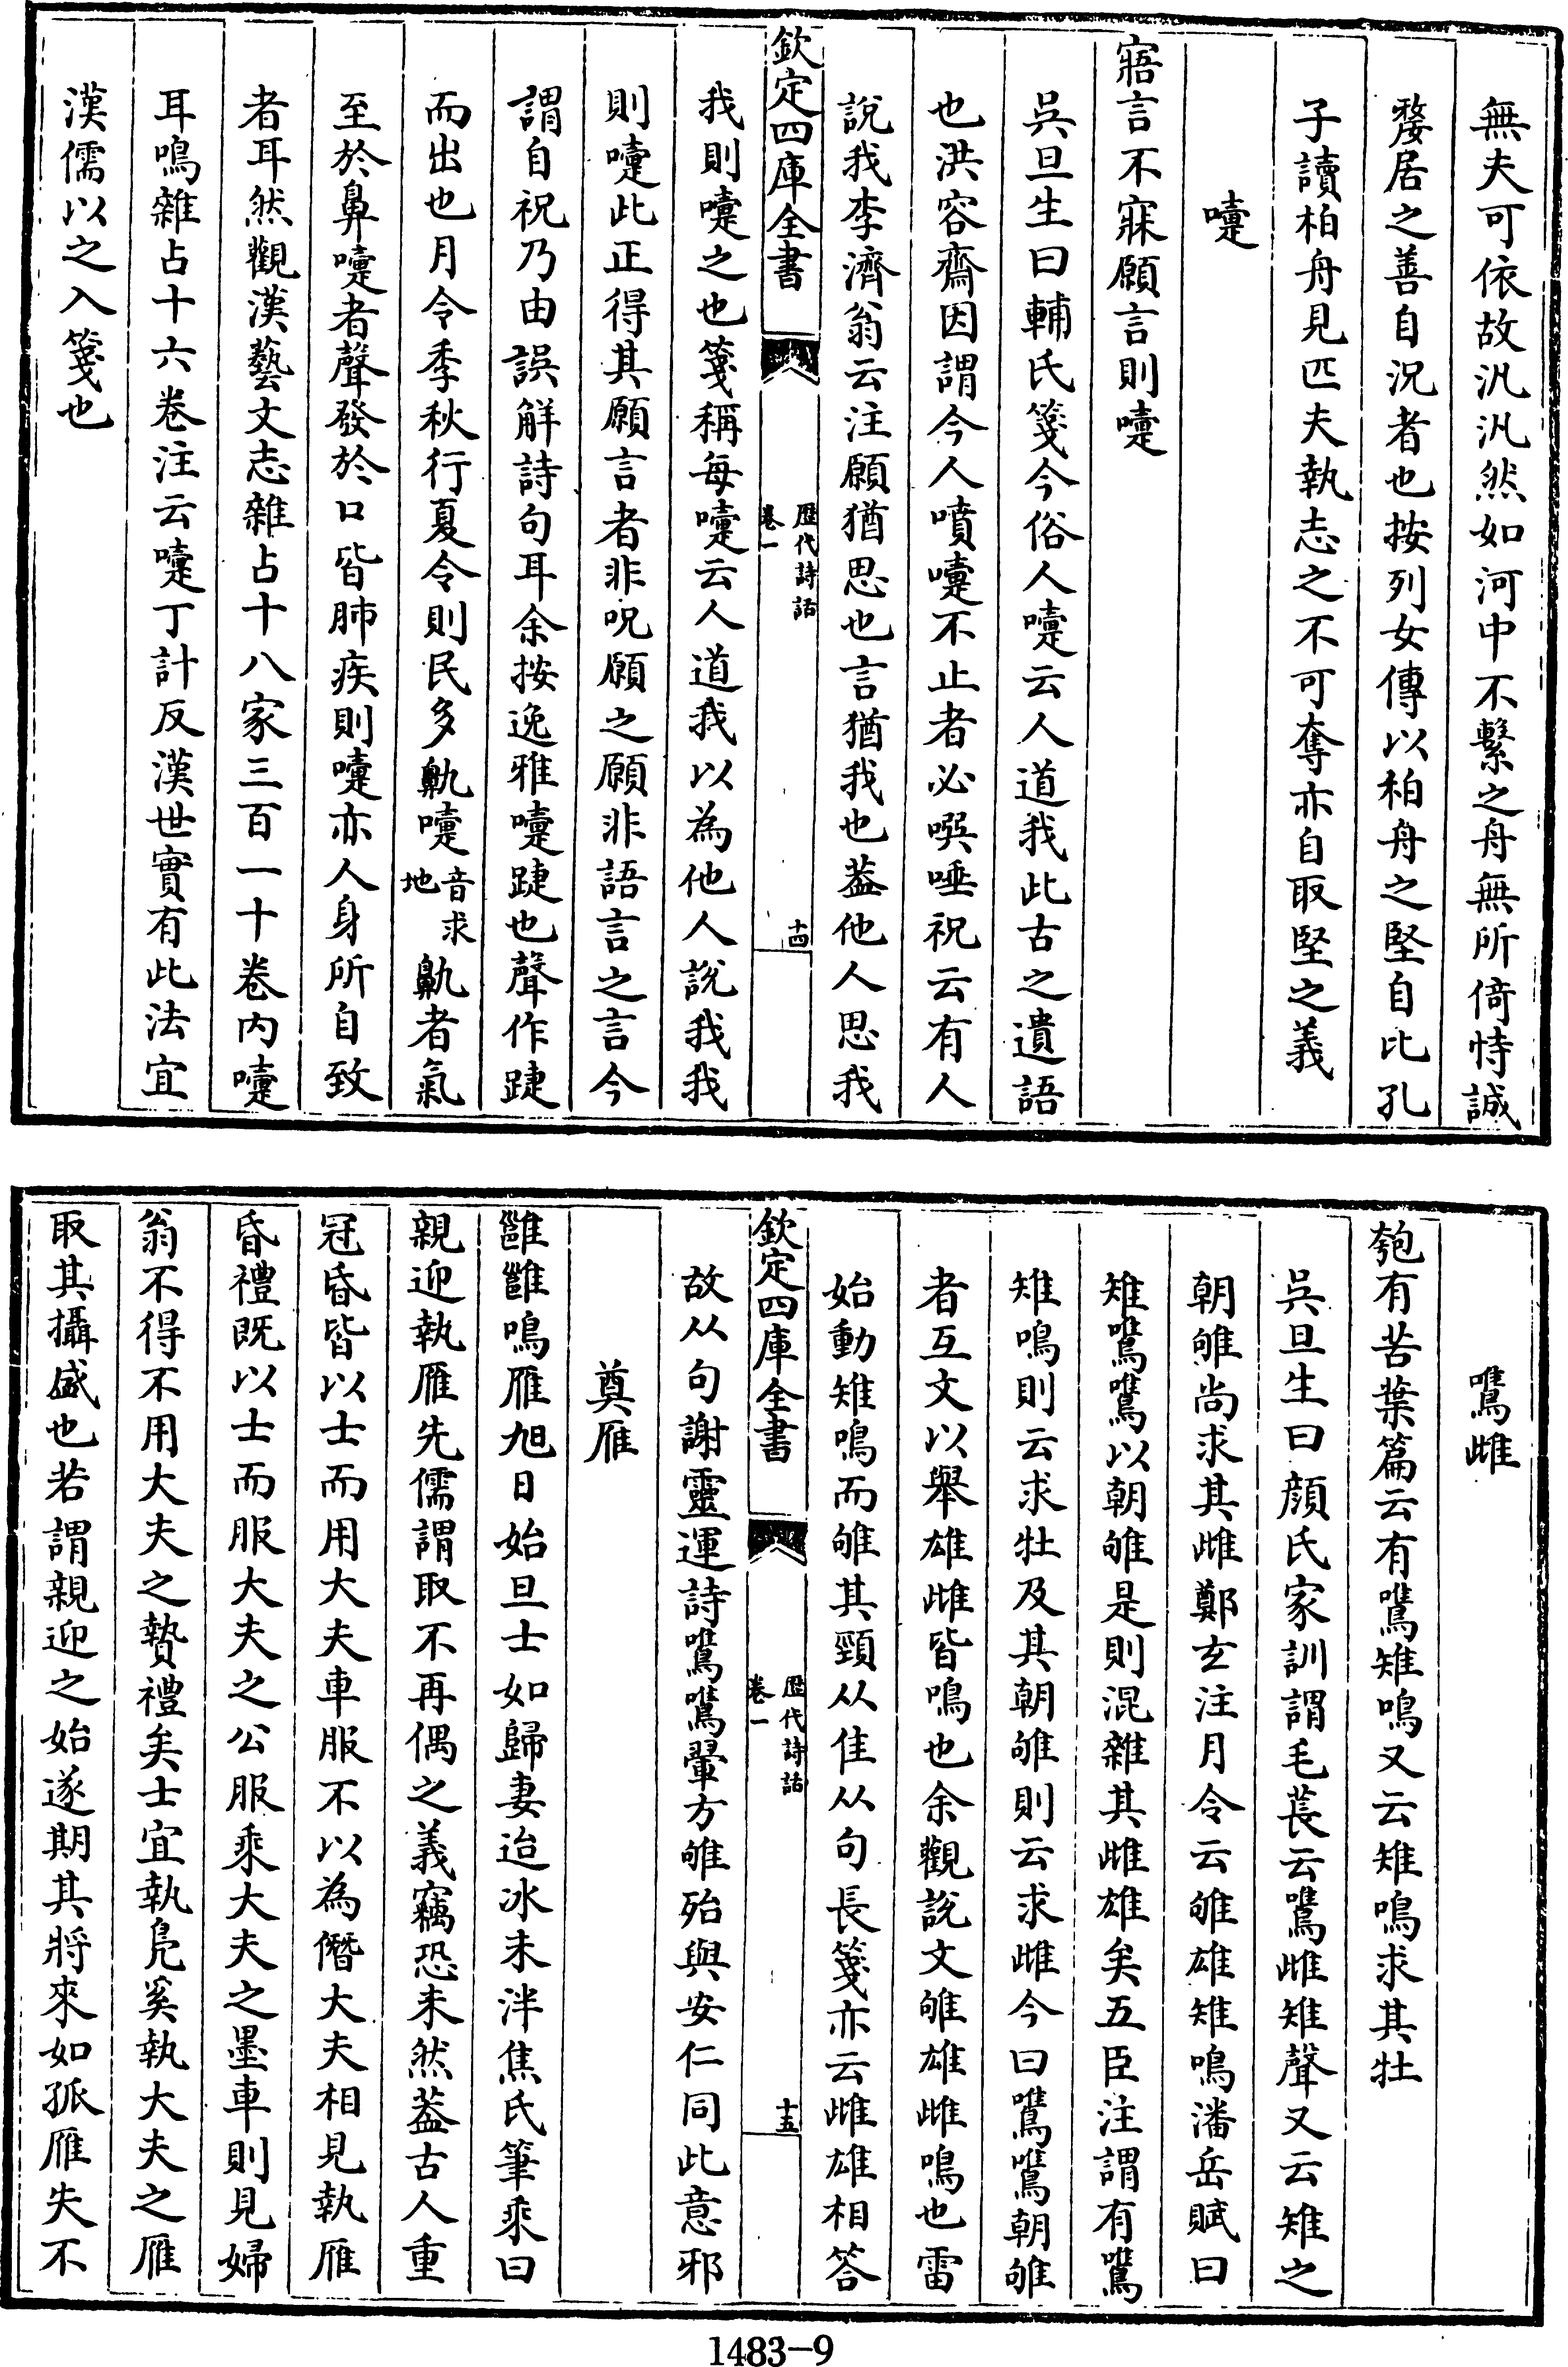 無夫可依故汎汎然如河中不繫之舟無所倚恃誠
嫠居之善自況者也按列女傳以柏舟之堅自比孔
子讀柏舟見匹夫執志之不可奪亦自取堅之義
嚔
寤言不寐願言則嚔
吳旦生曰輔氏箋今俗人嚔云人道我此古之遺語
也洪容齋因謂今人噴嚔不止者必噀唾祝云有人
說我李濟翁云注願猶思也言猶我也葢他人思我
欽定四庫全書
歷代詩話
卷一
十四
我則嚔之也箋稱每嚔云人道我以為他人說我我
則嚔此正得其願言者非呪願之願非語言之言今
謂自祝乃由誤解詩句耳余按逸雅嚔踕也聲作踕
而出也月令季秋行夏令則民多鼽嚔音求地鼽者氣
至於鼻嚔者聲發於口皆肺疾則嚔亦人身所自致
者耳然觀漢藝文志雜占十八家三百一十卷內嚔
耳鳴雜占十六卷注云嚔丁計反漢世實有此法宜
漢儒以之入箋也
鷕雌
匏有苦葉篇云有鷕雉鳴又云雉鳴求其牡
吳旦生曰顏氏家訓謂毛萇云鷕雌雉聲又云雉之
朝雊尚求其雌鄭玄注月令云雊雄雉鳴潘岳賦曰
雉鷕鷕以朝雊是則混雜其雌雄矣五臣注謂有鷕
雉鳴則云求牡及其朝雊則云求雌今曰鷕鷕朝雊
者互文以舉雄雌皆鳴也余觀說文雊雄雌鳴也雷
始動雉鳴而雊其頸从隹从句長箋亦云雌雄相答
欽定四庫全書
歷代詩話
卷一
十五
故从句謝靈運詩鷕鷕翬方雊殆與安仁同此意邪
奠雁
雝雝鳴雁旭日始旦士如歸妻迨冰未泮焦氏筆乘曰
親迎執雁先儒謂取不再偶之義竊恐未然葢古人重
冠昏皆以士而用大夫車服不以為僭大夫相見執雁
昏禮既以士而服大夫之公服乘大夫之墨車則見婦
翁不得不用大夫之贄禮矣士宜執鳧奚執大夫之雁
取其攝盛也若謂親迎之始遂期其將來如孤雁失不
1483-9